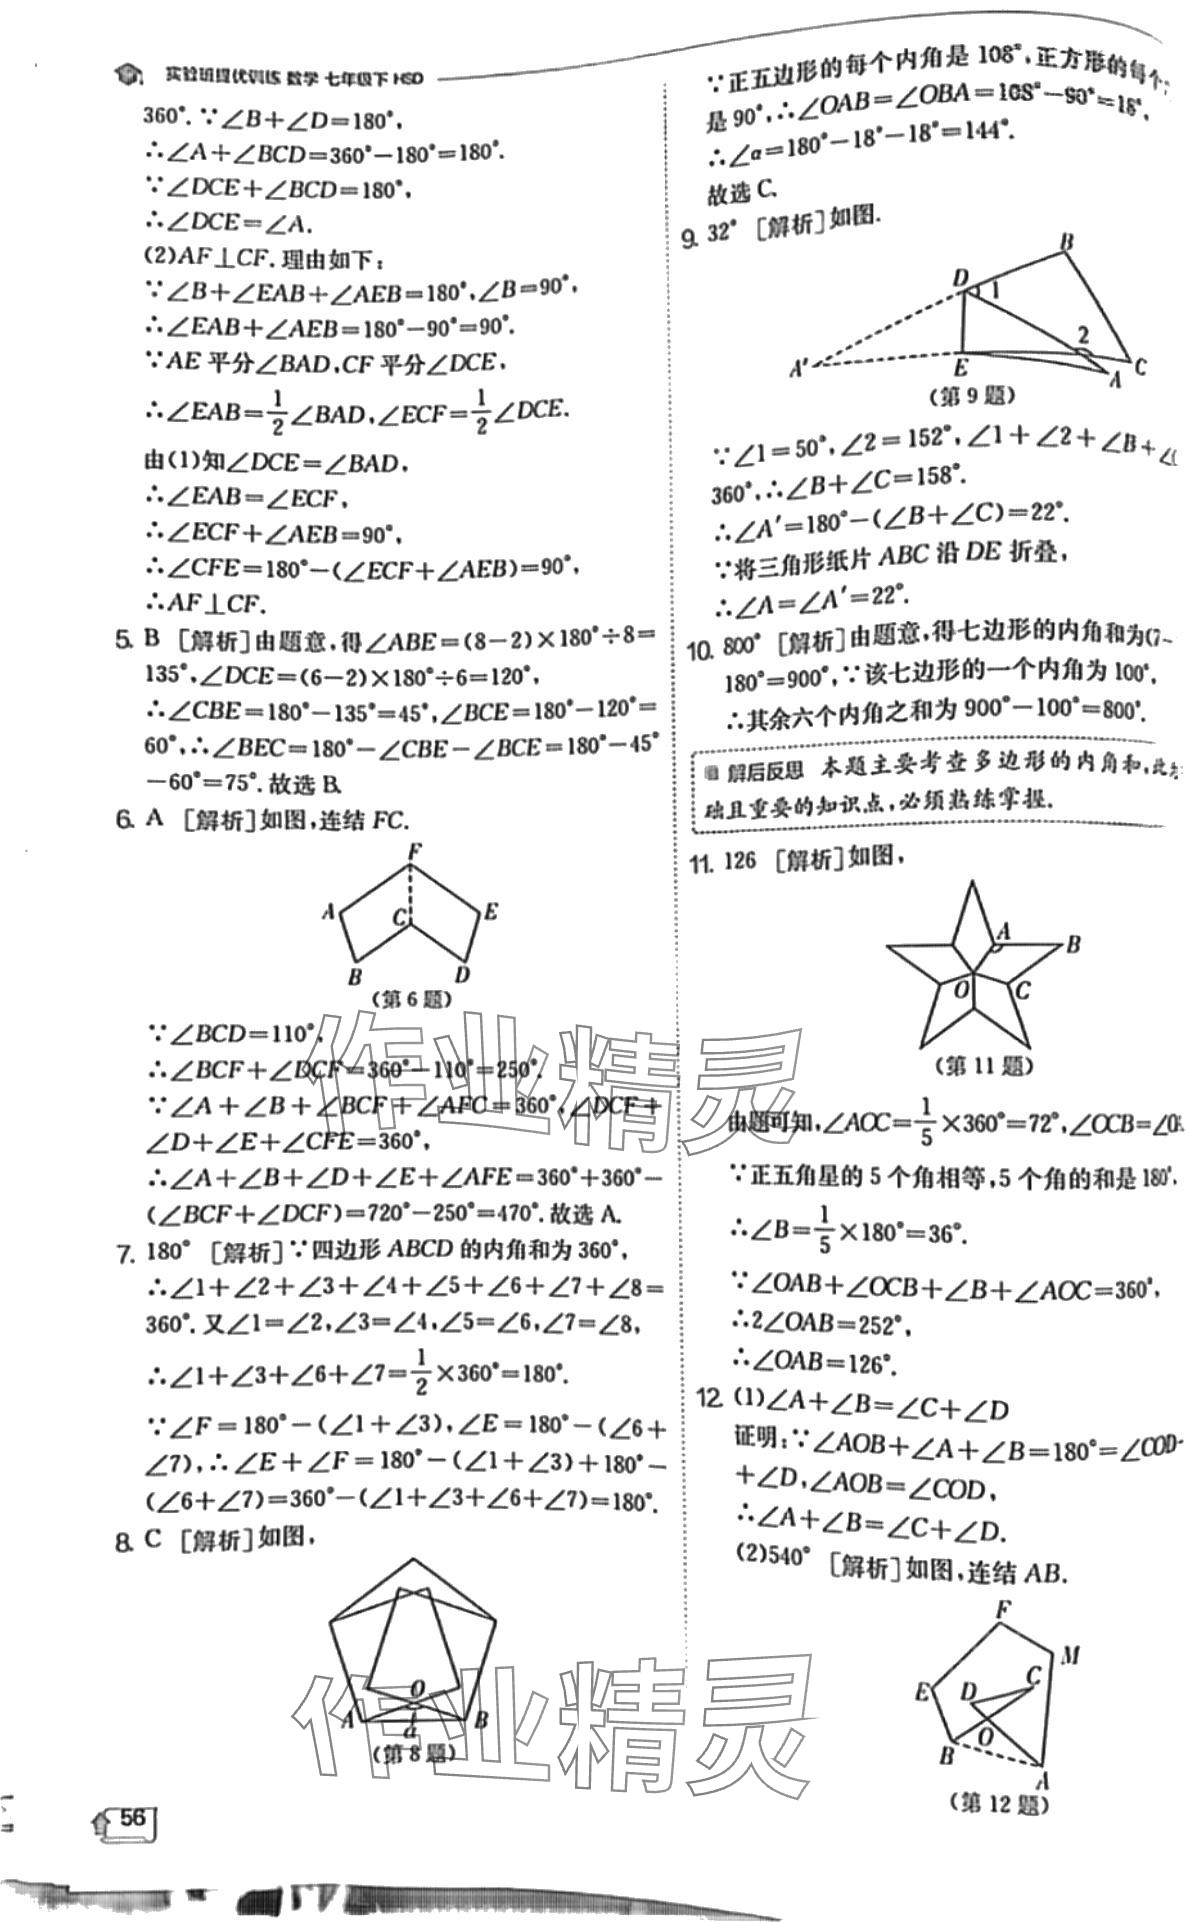 实验班提优训练 数学 七年级下 HSD
360°.∵∠B+∠D=180°,
∴∠A+∠BCD=360°-180°=180°.
∵∠DCE+∠BCD=180°,
∴∠DCE=∠A.
(2)AF⊥CF.理由如下:
∵∠B+∠EAB+∠AEB=180°,∠B=90°,
∴∠EAB+∠AEB=180°-90°=90°.
∵AE 平分∠BAD,CF 平分∠DCE,
∴∠EAB=1/2∠BAD,∠ECF=1/2∠DCE.
由(1)知∠DCE=∠BAD,
∴∠EAB=∠ECF,
∴∠ECF+∠AEB=90°,
∴∠CFE=180°-(∠ECF+∠AEB)=90°,
∴AF⊥CF.
5. B [解析]由题意,得∠ABE=(8-2)×180°÷8=
135°,∠DCE=(6-2)×180°÷6=120°,
∴∠CBE=180°-135°=45°,∠BCE=180°-120°=
60°,∴∠BEC=180°-∠CBE-∠BCE=180°-45°
-60°=75°.故选 B.
6. A [解析]如图,连结 FC.
F
A
C
E
B
D
(第 6 题)
∵∠BCD=110°,
∴∠BCF+∠DCF=360°-110°=250°.
∵∠A+∠B+∠BCF+∠AFC=360°,∠DCF+
∠D+∠E+∠CFE=360°,
∴∠A+∠B+∠D+∠E+∠AFE=360°+360°-
(∠BCF+∠DCF)=720°-250°=470°.故选 A.
7. 180° [解析]∵四边形 ABCD 的内角和为 360°,
∴∠1+∠2+∠3+∠4+∠5+∠6+∠7+∠8=
360°.又∠1=∠2,∠3=∠4,∠5=∠6,∠7=∠8,
∴∠1+∠3+∠6+∠7=1/2×360°=180°.
∵∠F=180°-(∠1+∠3),∠E=180°-(∠6+
∠7),∴∠E+∠F=180°-(∠1+∠3)+180°-
(∠6+∠7)=360°-(∠1+∠3+∠6+∠7)=180°.
8. C [解析]如图,
O
A
B
α
(第 8 题)
56
∵正五边形的每个内角是 108°,正方形的每个
是 90°,∴∠OAB=∠OBA=108°-90°=18°,
∴∠α=180°-18°-18°=144°.
故选 C.
9. 32° [解析]如图.
B
D
1
2
A′
E
A
C
(第 9 题)
∵∠1=50°,∠2=152°,∠1+∠2+∠B+∠C
360°,∴∠B+∠C=158°.
∴∠A′=180°-(∠B+∠C)=22°.
∵将三角形纸片 ABC 沿 DE 折叠,
∴∠A=∠A′=22°.
10. 800° [解析]由题意,得七边形的内角和为(7-
180°=900°,∵该七边形的一个内角为 100°,
∴其余六个内角之和为 900°-100°=800°.
解后反思 本题主要考查多边形的内角和,此
础且重要的知识点,必须熟练掌握.
11. 126 [解析]如图,
A
B
O
C
(第 11 题)
由题可知,∠AOC=1/5×360°=72°,∠OCB=∠O
∵正五角星的 5 个角相等,5 个角的和是 180°,
∴∠B=1/5×180°=36°.
∵∠OAB+∠OCB+∠B+∠AOC=360°,
∴2∠OAB=252°,
∴∠OAB=126°.
12. (1)∠A+∠B=∠C+∠D
证明:∵∠AOB+∠A+∠B=180°=∠COD
+∠D,∠AOB=∠COD,
∴∠A+∠B=∠C+∠D.
(2)540° [解析]如图,连结 AB.
F
M
C
E
D
O
B
A
(第 12 题)
作业精灵
作业精灵